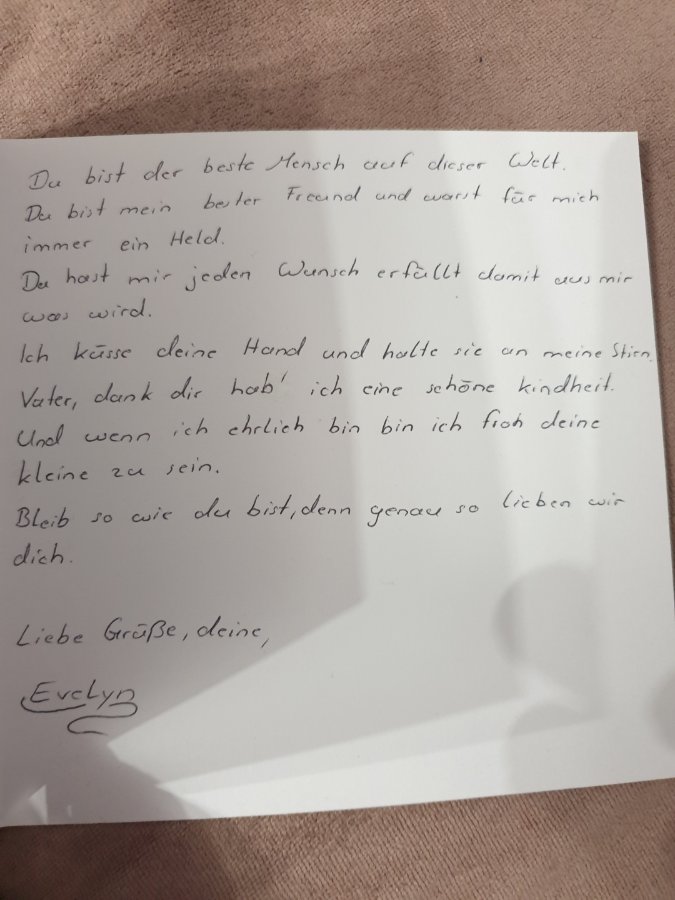 Du bist der beste Mensch auf dieser Welt.
Du bist mein bester Freund und warst für mich
immer ein Held.
Du hast mir jeden Wunsch erfüllt damit aus mir
was wird.
Ich küsse deine Hand und halte sie an meine Stirn.
Vater, dank dir hab' ich eine schöne kindheit.
Und wenn ich ehrlich bin bin ich froh deine
kleine zu sein.
Bleib so wie du bist, denn genau so lieben wir
dich.
Liebe Grüße, deine,
Evelyn